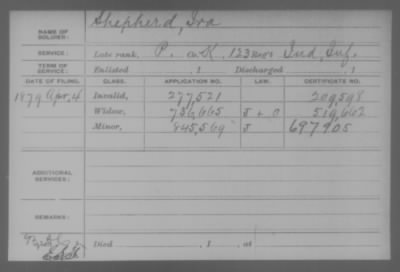 Shepherd, Ira
NAME OF SOLDIER:
SERVICE: Late rank, P. Co. K, 123 Regt Ind, Inf.
TERM OF SERVICE: Enlisted , 1 Discharged , 1
DATE OF FILING. CLASS. APPLICATION NO. LAW. CERTIFICATE NO.
1879 Apr, 4 Invalid, 277,521 209,598
Widow, 736,665 J + O 519,662
Minor, 845,569 J 697905
ADDITIONAL SERVICES:
REMARKS:
Died , 1 , at